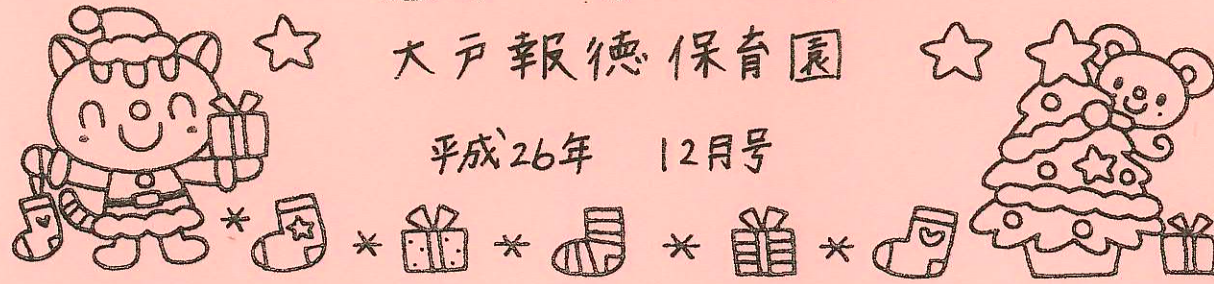 大戸報徳保育園
平成26年 12月号